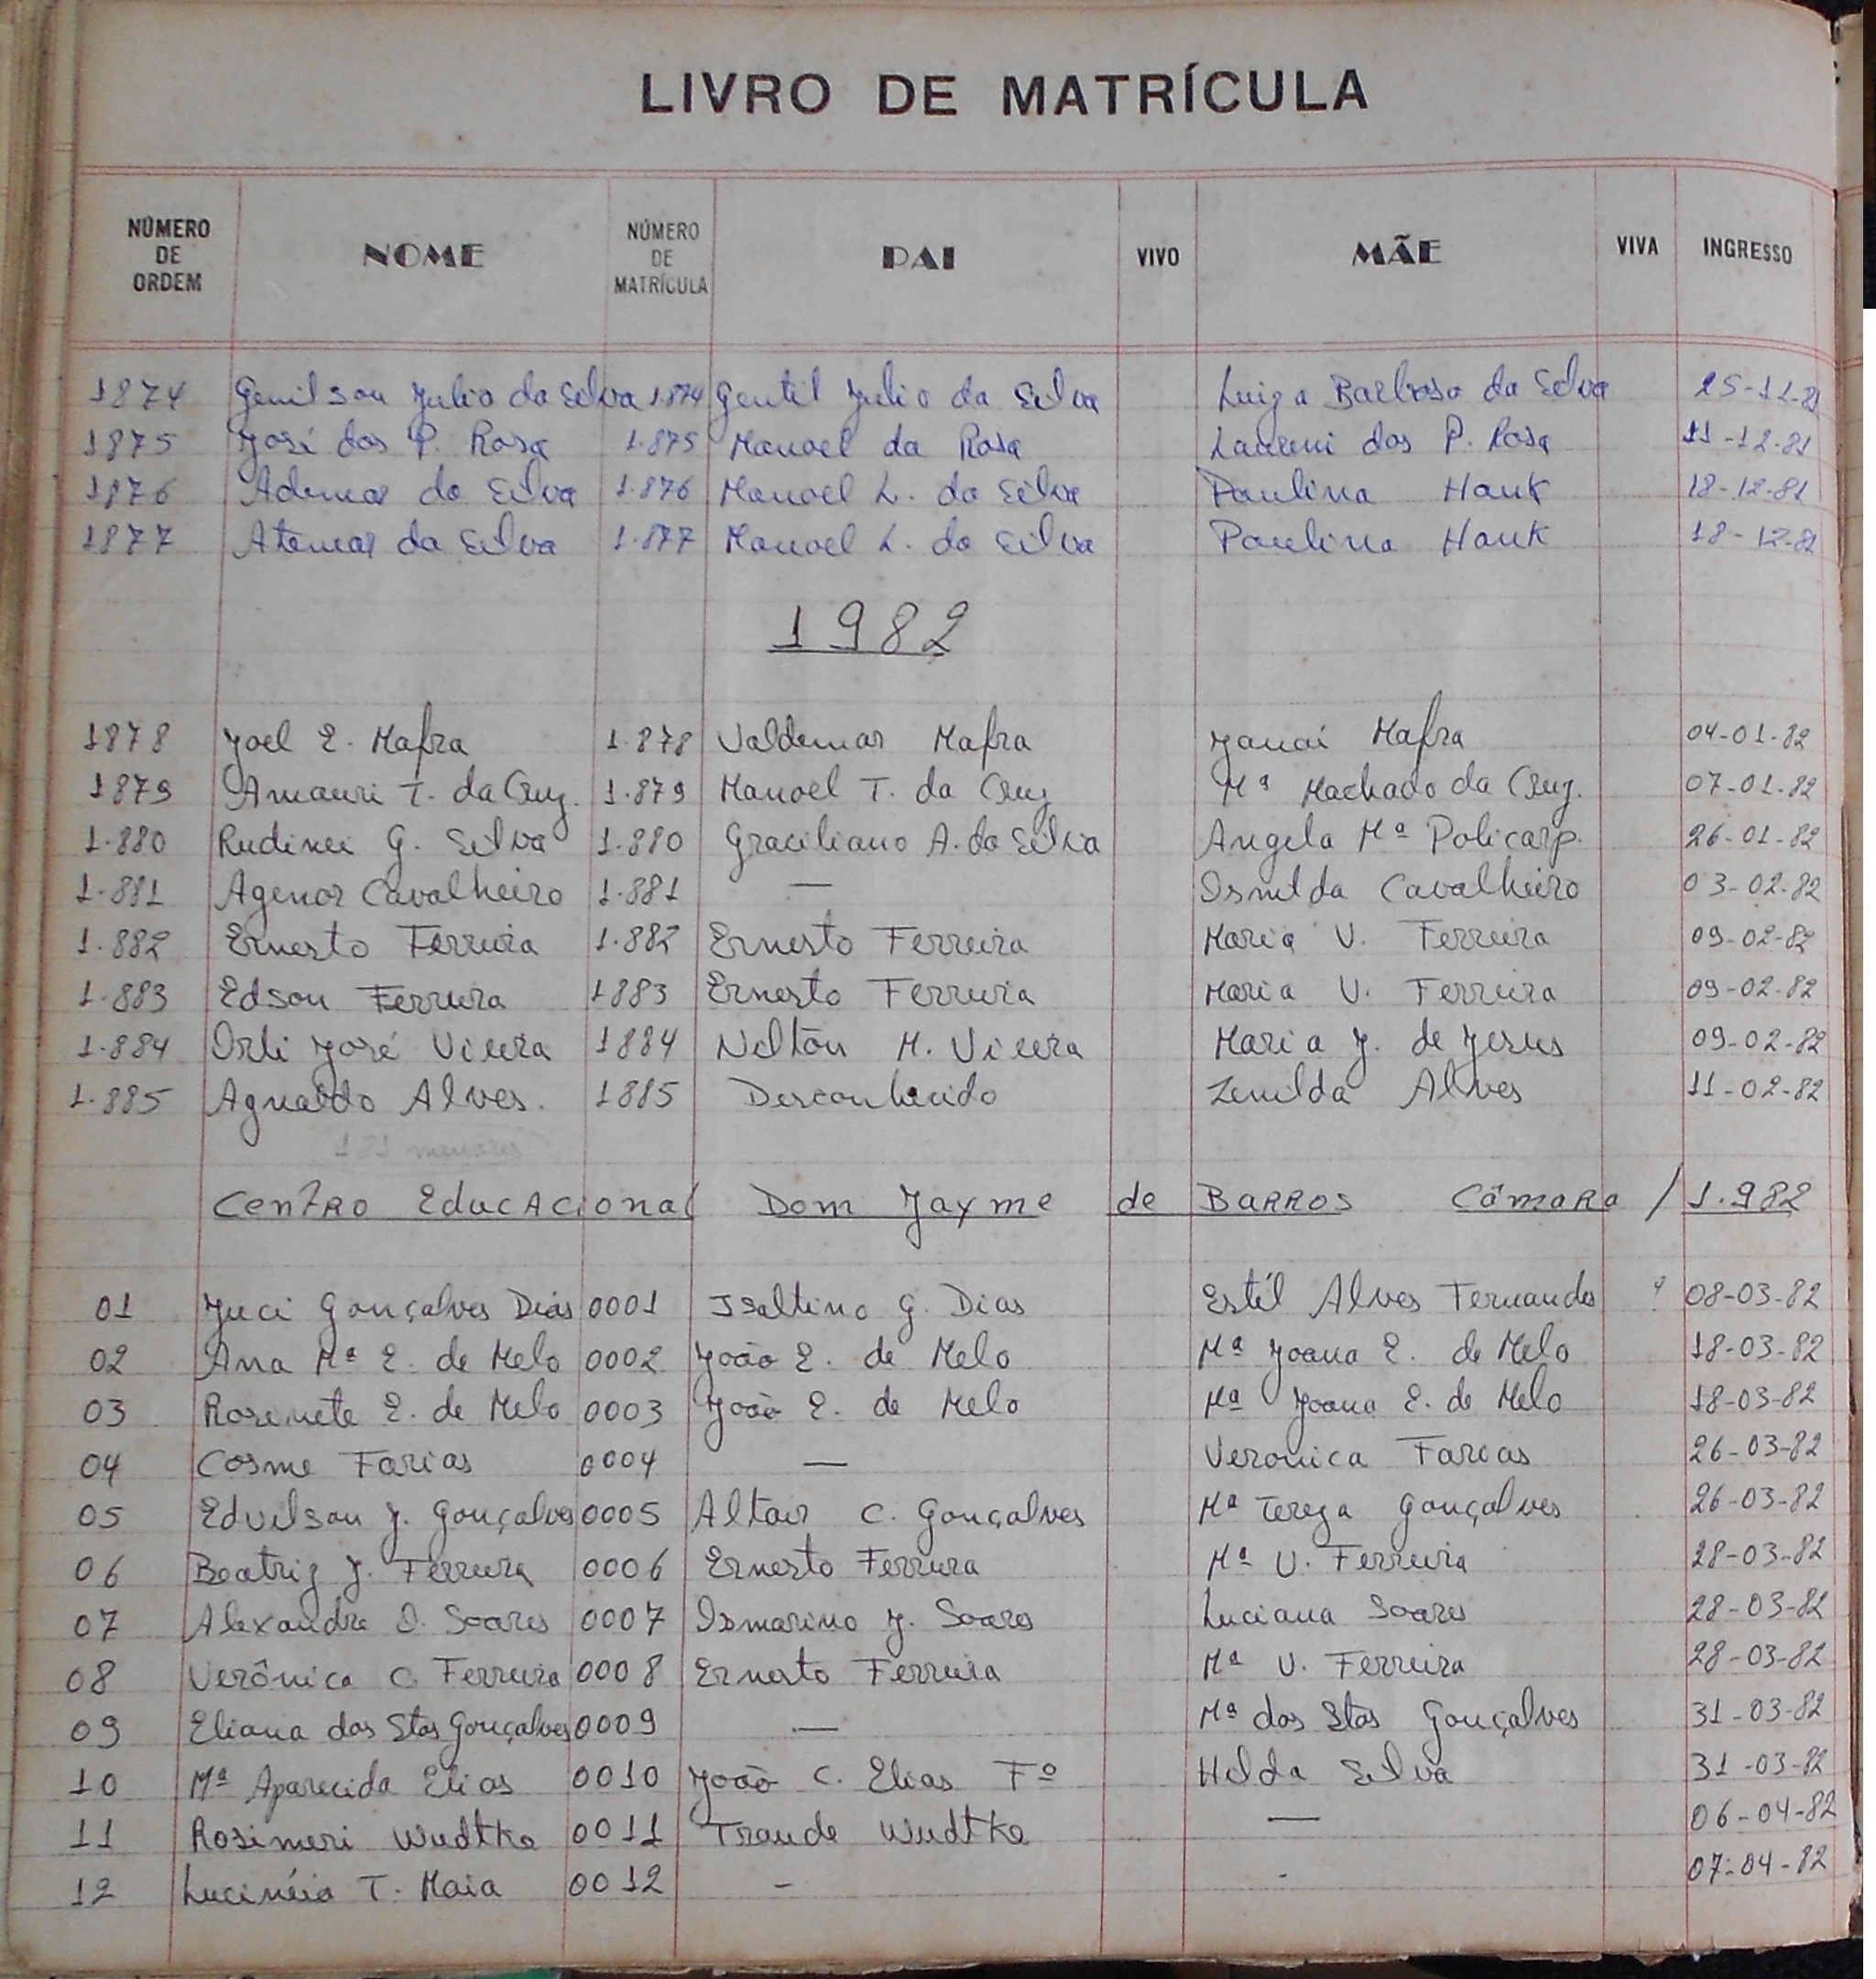 LIVRO DE MATRÍCULA
NÚMERO DE ORDEM NOME NÚMERO DE MATRÍCULA PAI VIVO MÃE VIVA INGRESSO
1874 Genilson Julio da Silva 1.874 Gentil Julio da Silva Luiza Barbosa da Silva 25-11-81
1875 José dos P. Rosa 1.875 Manoel da Rosa Laureni dos P. Rosa 11-12-81
1876 Ademar da Silva 1.876 Manoel L. da Silva Paulina Hank 18-12-81
1877 Atemar da Silva 1.877 Manoel L. da Silva Paulina Hank 18-12-81
1982
1878 Joel E. Mafra 1.878 Valdemar Mafra Janai Mafra 04-01-82
1879 Amauri T. da Cruz. 1.879 Manoel T. da Cruz Mª Machado da Cruz. 07-01-82
1.880 Rudinei G. Silva 1.880 Graciliano A. da Silva Angela Mª Policarp. 26-01-82
1.881 Agenor Cavalheiro 1.881 — Isnilda Cavalheiro 03-02-82
1.882 Ernesto Ferreira 1.882 Ernesto Ferreira Maria V. Ferreira 09-02-82
1.883 Edson Ferreira 1883 Ernesto Ferreira Maria V. Ferreira 09-02-82
1.884 Orli José Vieira 1884 Nilton M. Vieira Maria J. de Jesus 09-02-82
1.885 Agnaldo Alves. 1885 Desconhecido Zenilda Alves 11-02-82
181 menores
Centro Educacional Dom Jayme de Barros Câmara / 1.982
01 Juci Gonçalves Dias 0001 Isaltino G. Dias Estil Alves Fernandes 08-03-82
02 Ana Mª E. de Melo 0002 João E. de Melo Mª Joana E. de Melo 18-03-82
03 Rosenete E. de Melo 0003 João E. de Melo Mª Joana E. de Melo 18-03-82
04 Cosme Farias 0004 — Veronica Farias 26-03-82
05 Edvilson J. Gonçalves 0005 Altair C. Gonçalves Mª Tereza Gonçalves 26-03-82
06 Beatriz J. Ferreira 0006 Ernesto Ferreira Mª V. Ferreira 28-03-82
07 Alexandre O. Soares 0007 Osmarino J. Soares Luciana Soares 28-03-82
08 Verônica C. Ferreira 0008 Ernesto Ferreira Mª V. Ferreira 28-03-82
09 Eliana dos Stos Gonçalves 0009 — Mª dos Stos Gonçalves 31-03-82
10 Mª Aparecida Elias 0010 João C. Elias Fº Hilda Silva 31-03-82
11 Rosimeri Wudtke 0011 Traude Wudtke — 06-04-82
12 Lucinéia T. Maia 0012 - - 07-04-82